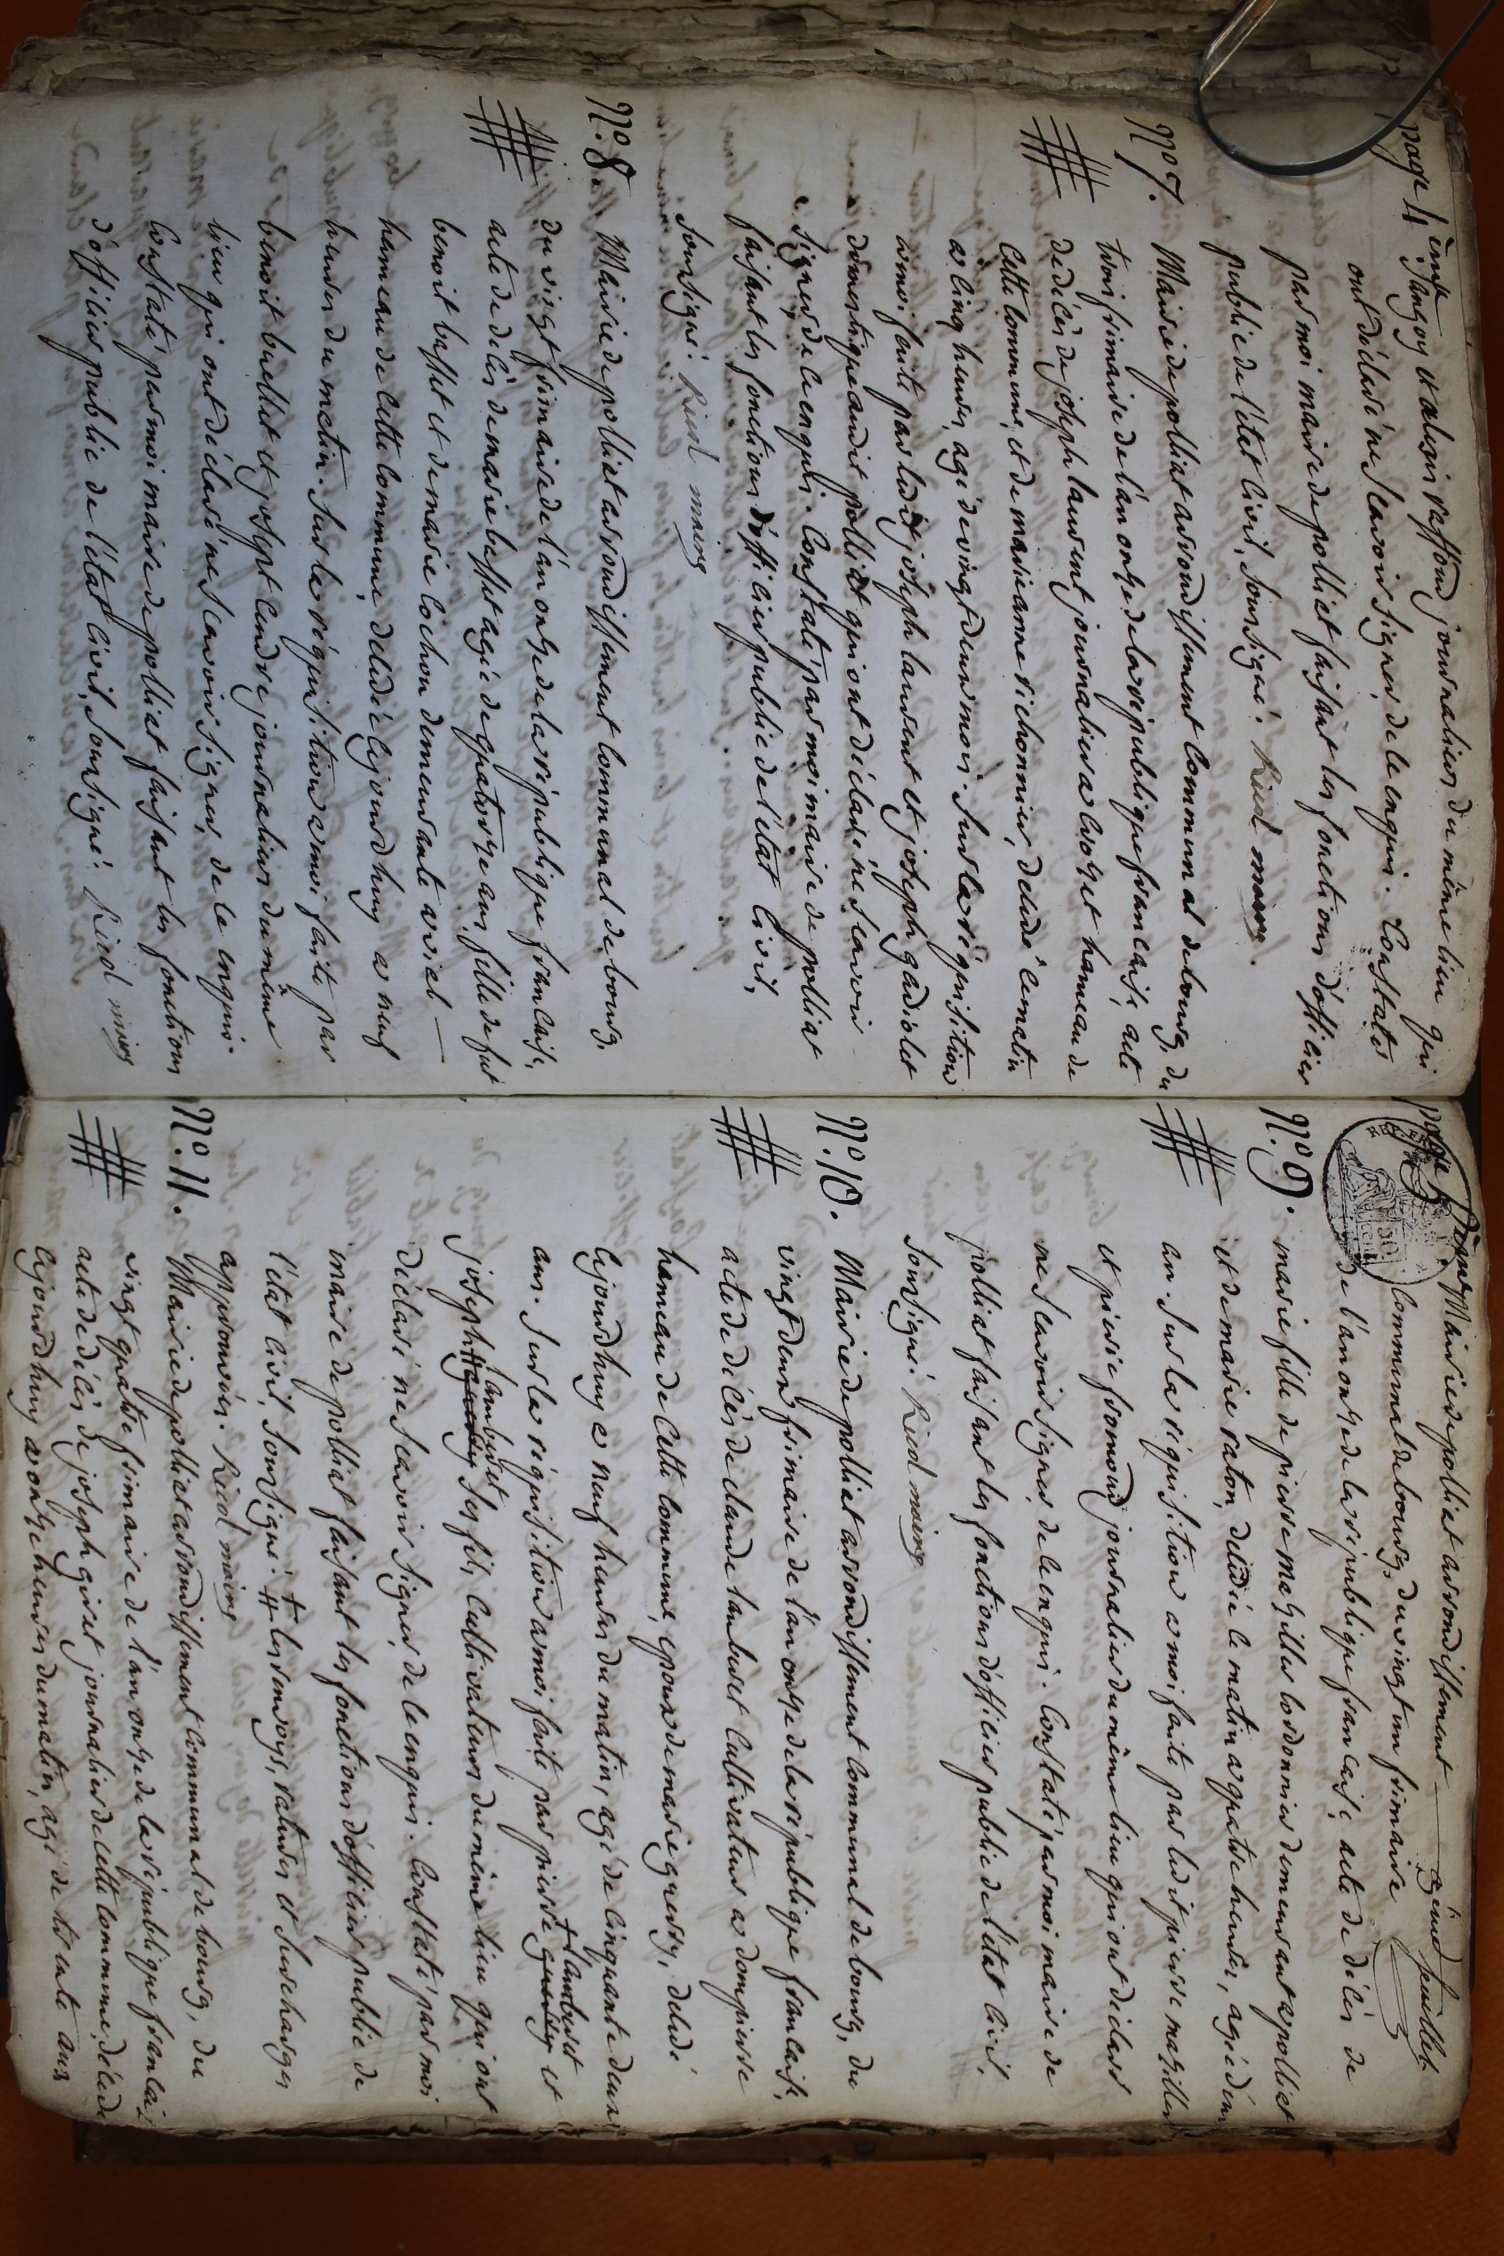 page 4ème
Jangoy et alexis raffond journalier du même lieu qui
ont déclaré ne Scavoir signer, de le enquis. Constatés
par moi maire de polliat faisant les fonctions d'officier
public de l'état Civil, soussigné. Ricol maire.
N° 7.
Mairie de polliat arrondissement Communal de bourg, du
trois frimaire de l'an onze de la république francaise, acte
de décès de joseph laurent journalier a crozet hameau de
Cette Commune, et de marieanne richonnier, décédé le matin
a Cinq heures, agé de vingt deux mois. Sur la réquisition
a moi faite par ledit joseph laurent et joseph gadiolet
domestique audit polliat qui ont déclaré ne scavoir
signer, de ce enquis. Constaté par moi maire de polliat
faisant les fonctions d'officier public de l'état Civil,
Soussigné. Ricol maire
N° 8.
Mairie de polliat arrondissement Communal de bourg,
du vingt frimaire de l'an onze de la république francaise,
acte de décès de marie basset agée de quatorze ans fille de fut
benoit basset et de marie Cochon demeurante a viel
hameau de Cette Commune, décédée le jourdhuy a neuf
heures du matin. Sur la réquisition a moi faite par
benoit buellet et joseph Cendre journalier du même
lieu qui ont déclaré ne scavoir signer, de le enquis.
Constaté par moi maire de polliat faisant les fonctions
d'officier public de l'état Civil, soussigné. Ricol maire
page 5ème
2eme feuillet
Mairie de polliat arrondissement
N° 9.
Communal de bourg, du vingt un frimaire
de l'an onze de la république francaise, acte de décès de
marie fille de pierre mazillier Cordonnier demeurant a polliat
et de marie raton, décédée le matin a quatre heures, agée d'un
an. Sur la réquisition a moi faite par ledit pierre mazillier
et pierre fromond journalier du même lieu qui ont déclaré
ne scavoir signer, de le enquis. Constaté par moi maire de
polliat faisant les fonctions d'officier public de l'état Civil,
Soussigné. Ricol maire
N° 10.
Mairie de polliat arrondissement Communal de bourg, du
vingt deux frimaire de l'an onze de la république francaise,
acte de décès de claude lamberet Cultivateur a dompierre
hameau de Cette Commune, epoux de marie querry, décédé
le jourdhuy a neuf heures du matin, agé de Cinquante deux
ans. Sur la réquisition a moi faite par pierre querry + lamberet et
joseph querry lamberet ses fils, Cultivateurs du même lieu qui ont
déclaré ne scavoir signer, de le enquis. Constaté par moi
maire de polliat faisant les fonctions d'officier public de
l'état Civil, soussigné. + les renvoys, ratures et surcharges
approuvés. Ricol maire
N° 11.
Mairie de polliat arrondissement Communal de bourg, du
vingt quatre frimaire de l'an onze de la république francaise
acte de décès de joseph giret journalier de Cette Commune, décédé
le jourdhuy a onze heures du matin, agé de trente ans